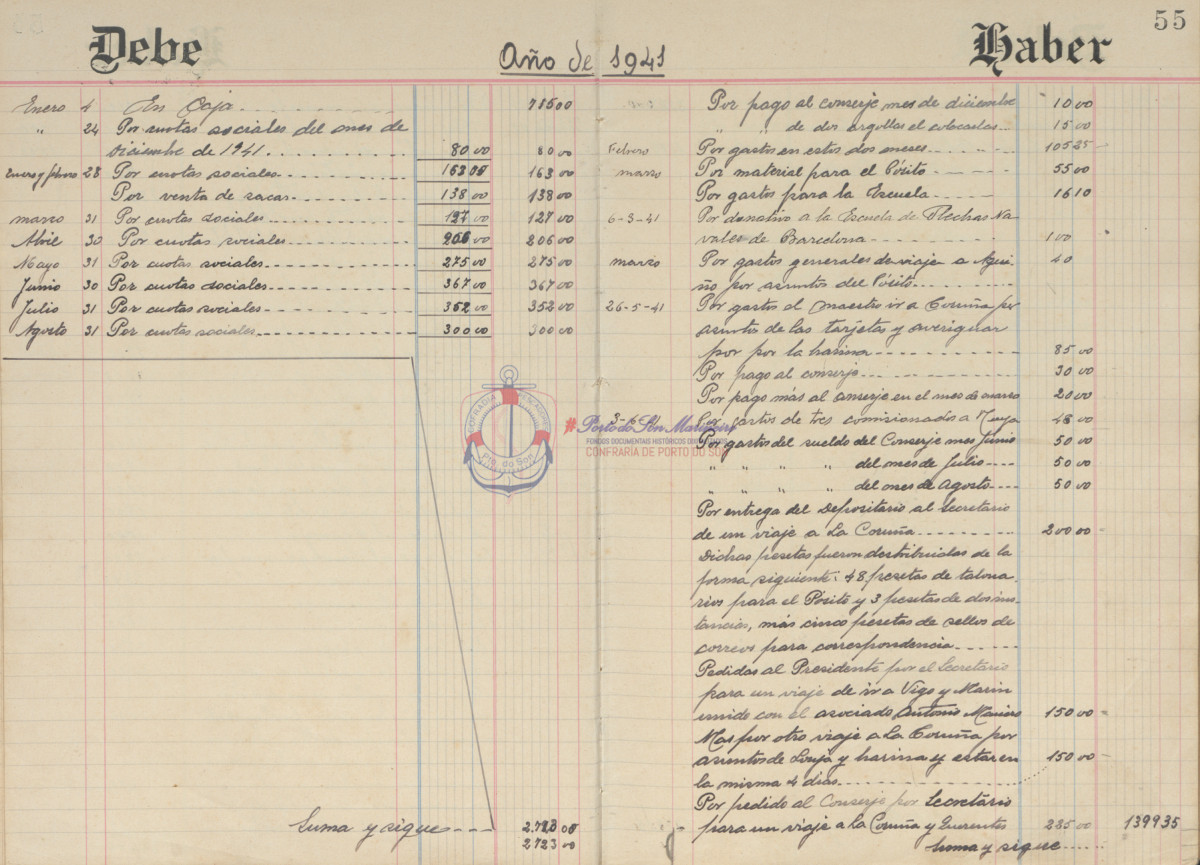 55
Debe
Año de 1941
Haber
Enero 4 En Caja 715 00
" 24 Por cuotas sociales del mes de
Diciembre de 1941. 80 00 80 00
Enero y febrero 28 Por cuotas sociales 163 00 163 00
Por venta de sacas 138 00 138 00
marzo 31 Por cuotas sociales 127 00 127 00
Abril 30 Por cuotas sociales 206 00 206 00
Mayo 31 Por cuotas sociales 275 00 275 00
Junio 30 Por cuotas sociales 367 00 367 00
Julio 31 Por cuotas sociales 352 00 352 00
Agosto 31 Por cuotas sociales 300 00 300 00
Suma y sigue 2.723 00
2723 00
Por pago al conserje mes de diciembre 10 00
" " de dos argollas el colocarlas 15 00
Febrero Por gastos en estos dos meses 105 25
marzo Por material para el Pósito 55 00
Por gastos para la Escuela 16 10
6-3-41 Por donativo a la Escuela de Flechas Na
vales de Barcelona 1 00
marzo Por gastos generales de viaje a Agui
ño por asuntos del Pósito 40
26-5-41 Por gastos al maestro ir a Coruña por
asuntos de las tarjetas y averiguar
por por la harina 85 00
Por pago al conserje 30 00
Por pago más al conserje en el mes de marzo 20 00
3-6- Por gastos de tres comisionados a 48 00
Por gastos del sueldo del Conserje mes Junio 50 00
" " " " del mes de Julio 50 00
" " " " del mes de Agosto 50 00
Por entrega del Depositario al Secretario
de un viaje a La Coruña 200 00
Dichas pesetas fueron destribuidas de la
forma siguiente: 48 pesetas de talona
rios para el Pósito y 3 pesetas de dos ins-
tancias, más cinco pesetas de sellos de
correos para correspondencia
Pedidas al Presidente por el Secretario
para un viaje de ir a Vigo y Marin
unido con el asociado Antonio Maneiro 150 00
Mas por otro viaje a La Coruña por
asuntos de Lonja y harina y estar en 150 00
la misma 4 dias
Por pedido al Conserje por Secretario
para un viaje a la Coruña y 285 00 1399 35
Suma y sigue
COFRADIA PESCADORES
Pto. do Son
#Porto do Son Mariñeiro
FONDOS DOCUMENTAIS HISTÓRICOS DO
CONFRARÍA DE PORTO DO SON